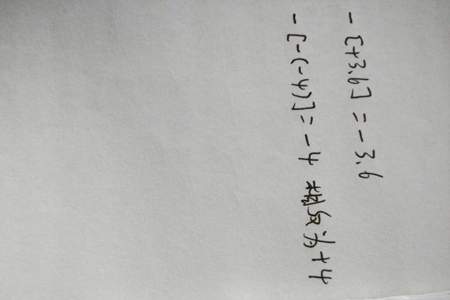 -[+3.6]=-3.6
-[-(-4)]=-4 相反为+4